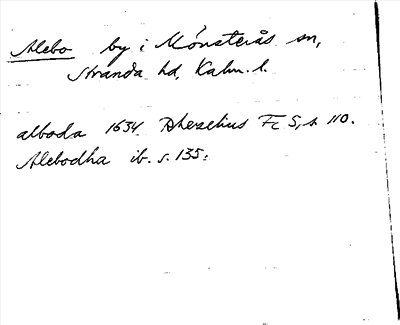 Alebo by i Mönsterås sn,
Stranda hd, Kalm. l.
alboda 1634 Rhezelius Fc 5, s. 110.
Alebodha ib. s. 135.